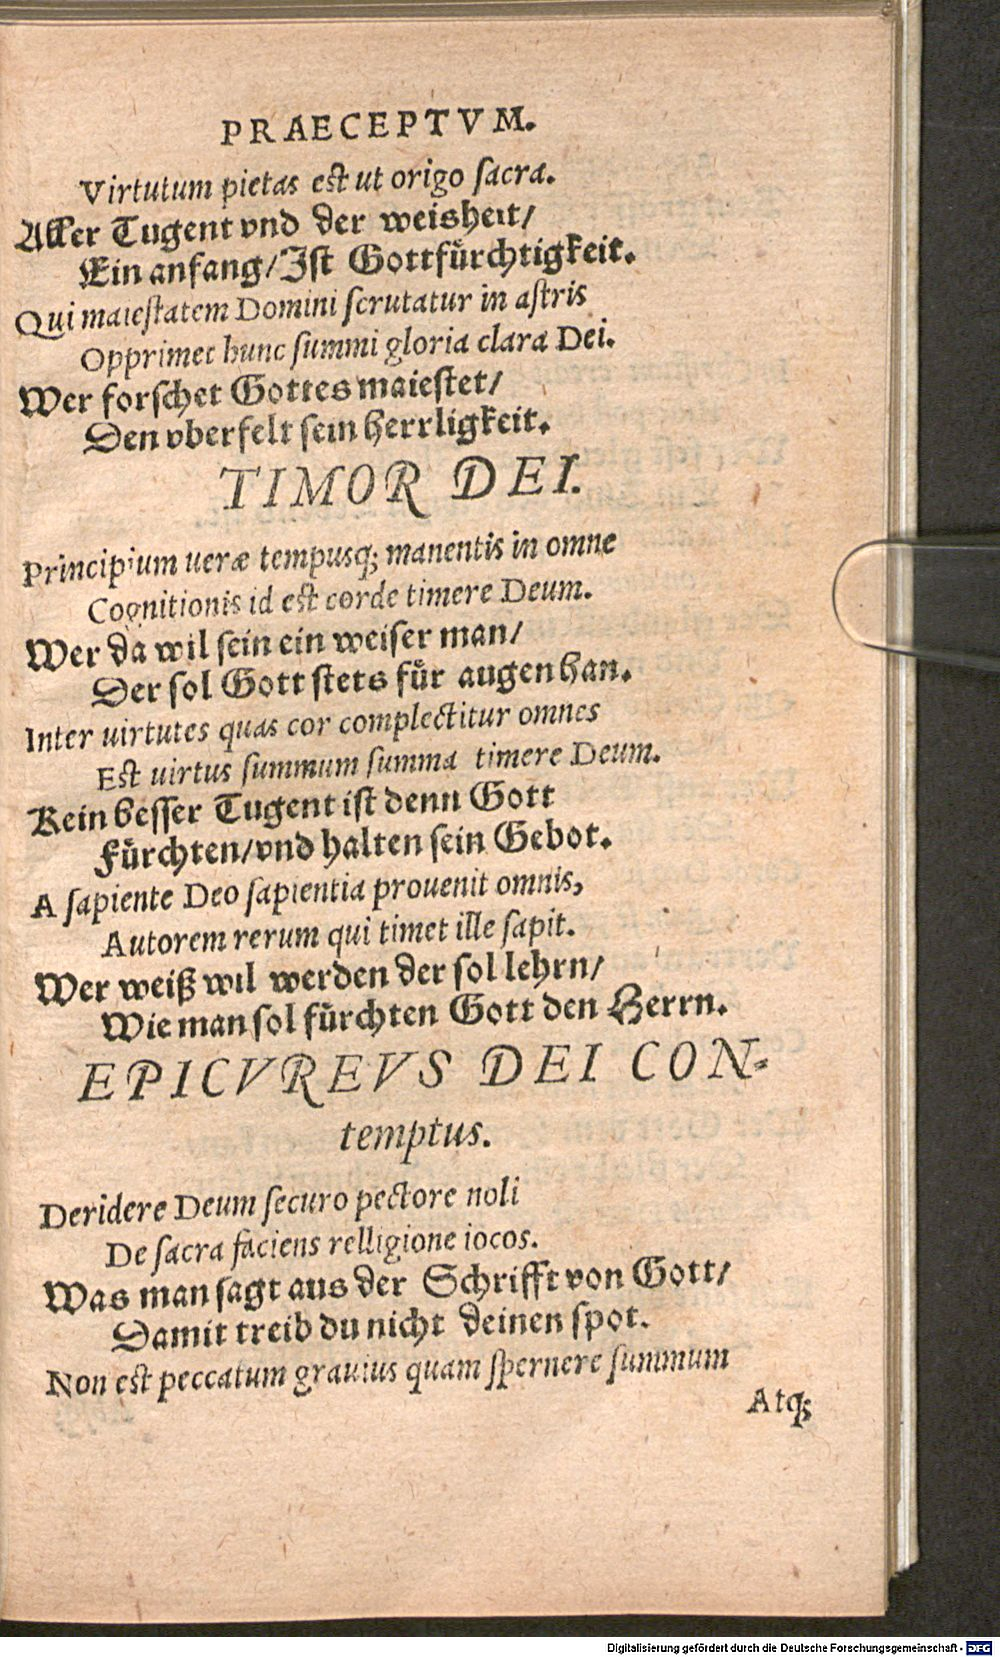 PRAECEPTVM.
Virtutum pietas est ut origo sacra.
Aller Tugent vnd der weisheit/
Ein anfang/Ist Gottfürchtigkeit.
Qui maiestatem Domini scrutatur in astris
Opprimet hunc summi gloria clara Dei.
Wer forschet Gottes maiestet/
Den vberfelt sein herrligkeit.
TIMOR DEI.
Principium ueræ tempusq; manentis in omne
Cognitionis id est corde timere Deum.
Wer da wil sein ein weiser man/
Der sol Gott stets für augen han.
Inter uirtutes quas cor complectitur omnes
Est uirtus summum summa timere Deum.
Kein besser Tugent ist denn Gott
Fürchten/vnd halten sein Gebot.
A sapiente Deo sapientia prouenit omnis,
Autorem rerum qui timet ille sapit.
Wer weiß wil werden der sol lehrn/
Wie man sol fürchten Gott den Herrn.
EPICVREVS DEI CON-
temptus.
Deridere Deum securo pectore noli
De sacra faciens relligione iocos.
Was man sagt aus der Schrifft von Gott/
Damit treib du nicht deinen spot.
Non est peccatum grauius quam spernere summum
Atq;
Digitalisierung gefördert durch die Deutsche Forschungsgemeinschaft - DFG